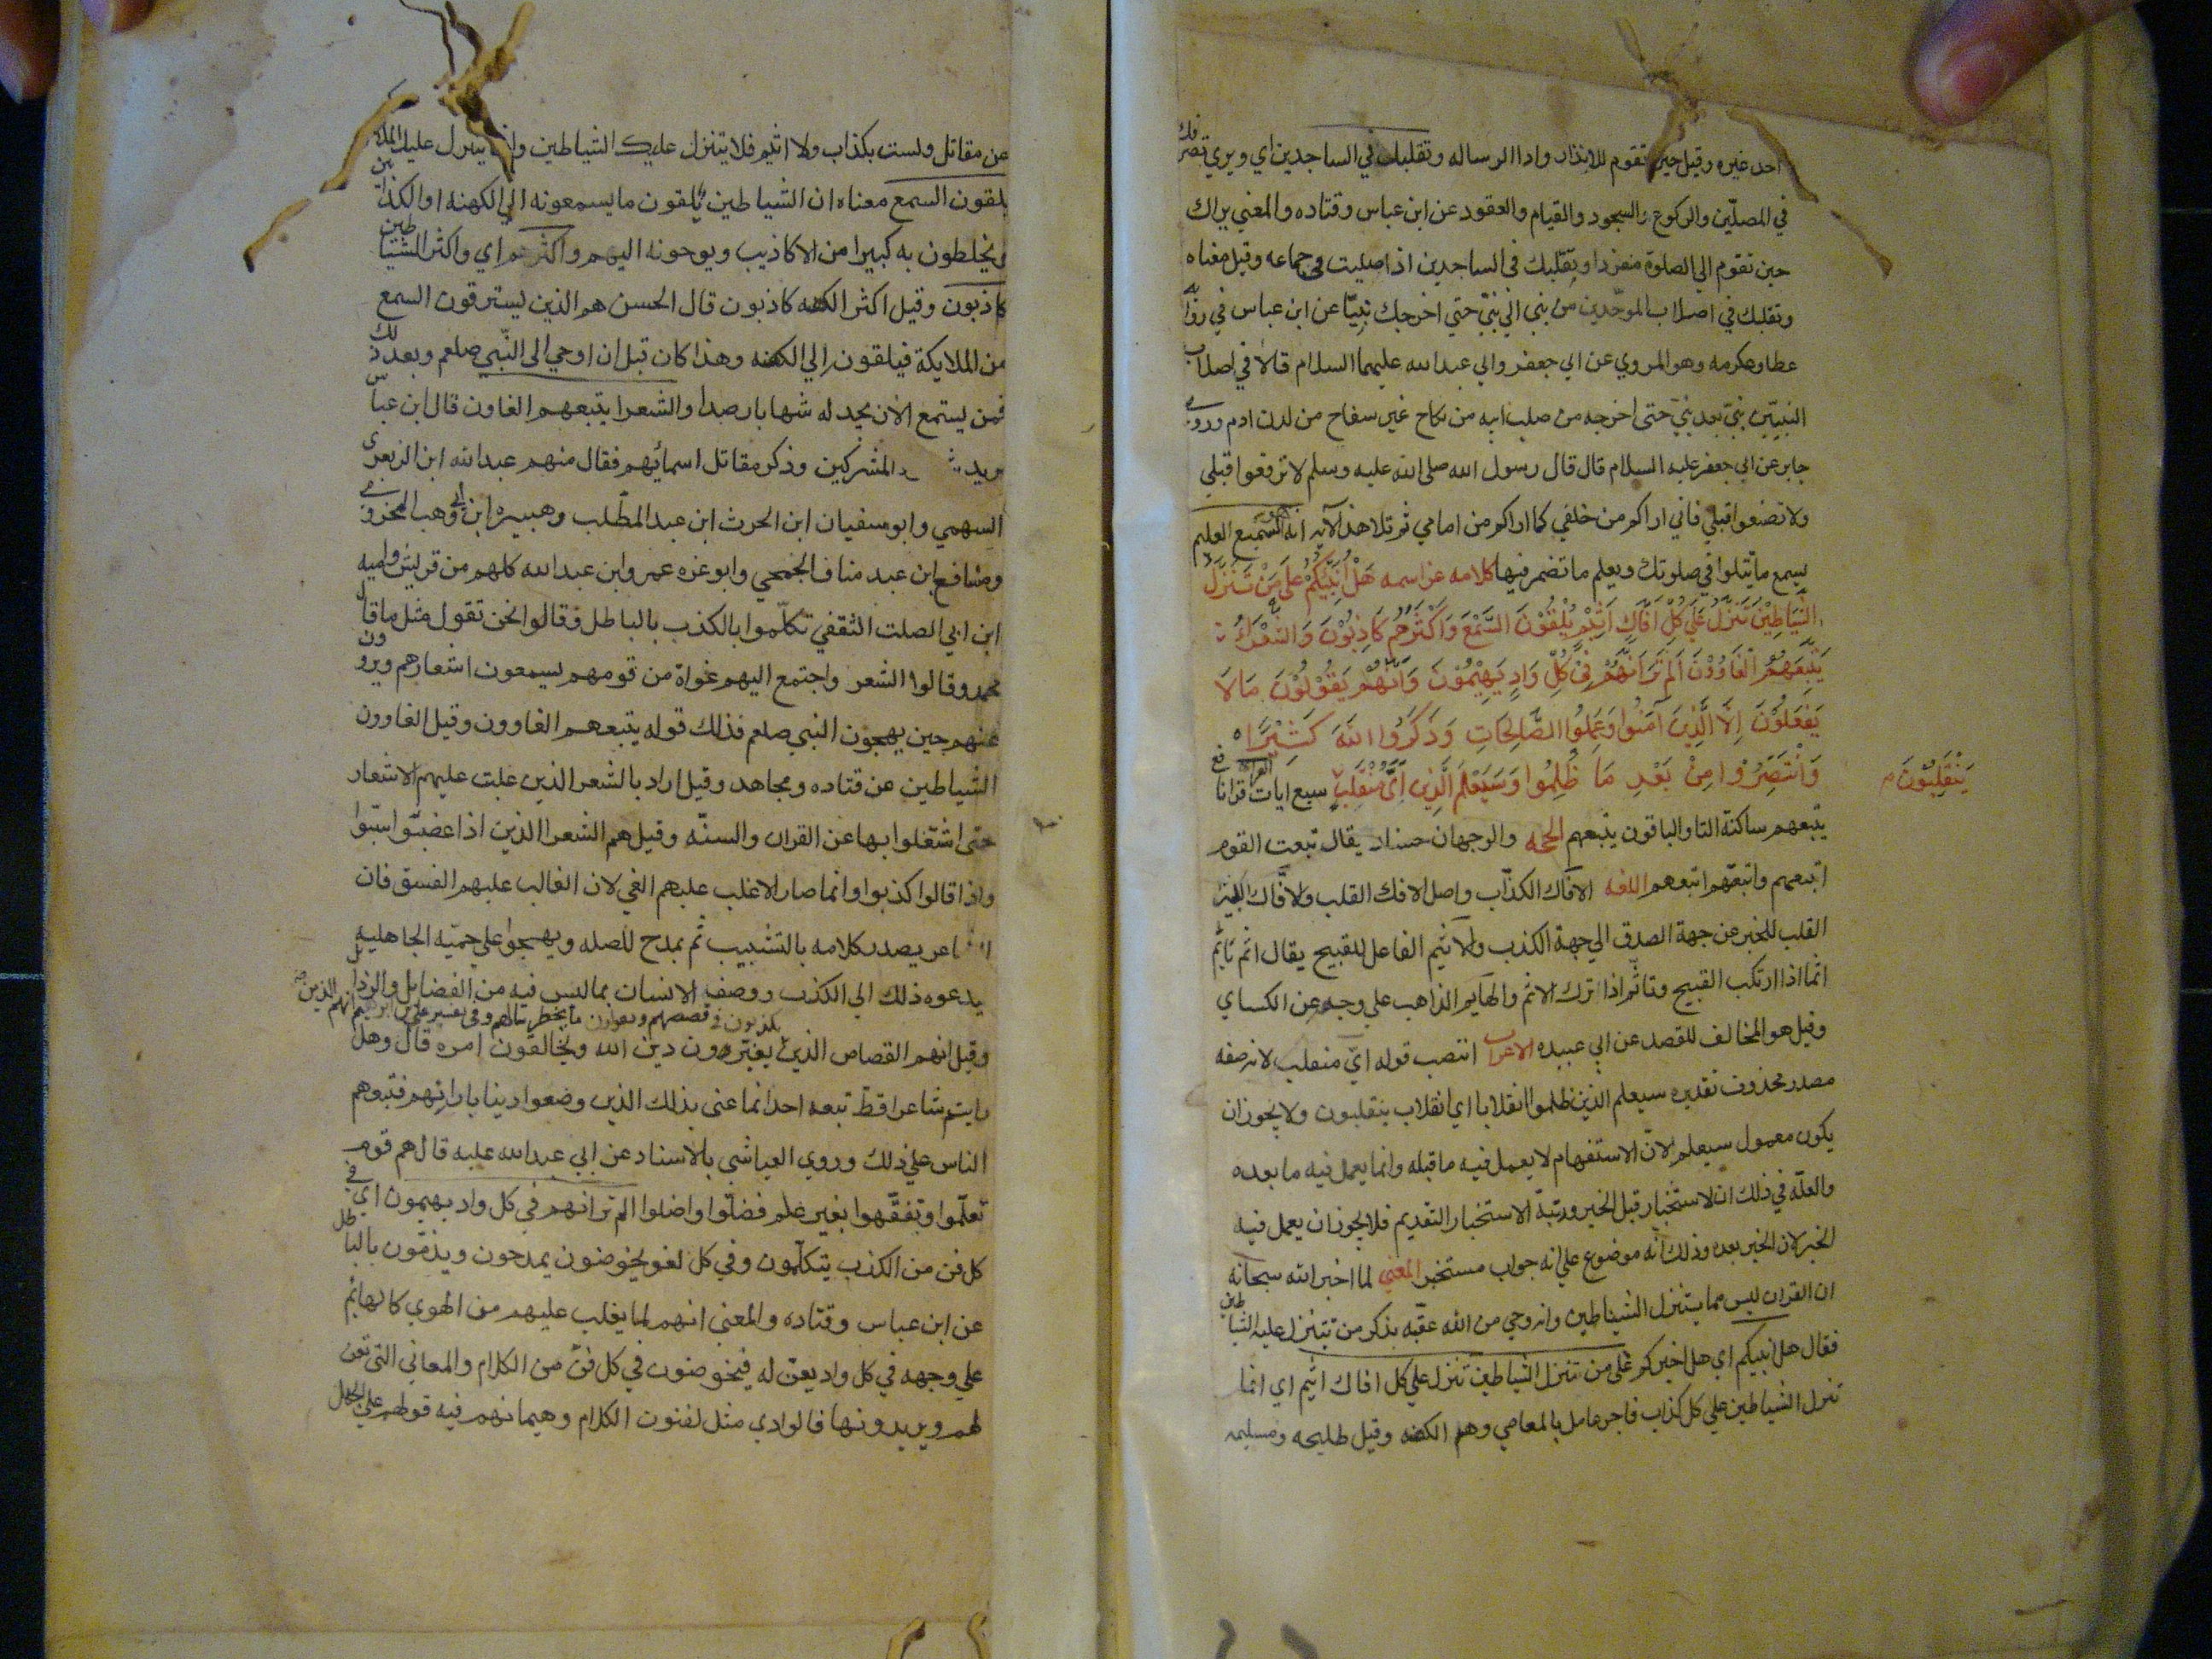 احد غيره وقيل حين تقوم للانذار وادا الرساله وتقلبك في الساجدين اي ويري تصرفك
في المصلين والركوع والسجود والقيام والعقود عن ابن عباس وقتاده والمعني يراك
حين تقوم الي الصلوة منفردا وتقلبك في الساجدين اذا صليت في جماعه وقيل معناه
وتقلبك في اصلاب الموحدين من نبي الي نبي حتي اخرجك نبيا عن ابن عباس في رواية
عطا وعكرمه وهو المروي عن ابي جعفر وابي عبد الله عليهما السلام قالا في اصلاب
النبيين نبي بعد نبي حتي اخرجه من صلب ابيه من نكاح غير سفاح من لدن ادم وروي
جابر عن ابي جعفر عليه السلام قال قال رسول الله صلي الله عليه وسلم لا ترفعوا قبلي
ولا تضعوا قبلي فاني اراكم من خلفي كما اراكم من امامي ثم تلا هذه الآية انه هو السميع العليم
يسمع ما تتلوا في صلوتك ويعلم ما تضمر فيها كلامه عز اسمه هَلْ اُنَبِّيُكُمْ عَلَي مَنْ تَنَزَّلُ
الشَّيَاطِيْنُ تَنَزَّلُ عَلَي كُلِّ اَفَّاكٍ اَثِيْمٍ يُلْقُوْنَ السَّمْعَ وَاَكْثَرُهُمْ كَاذِبُوْنَ وَالشُّعَرَاءُ
يَتَّبِعُهُمُ الْغَاوُوْنَ اَلَمْ تَرَ اَنَّهُمْ فِيْ كُلِّ وَادٍ يَهِيْمُوْنَ وَاَنَّهُمْ يَقُوْلُوْنَ مَا لَا
يَفْعَلُوْنَ اِلَّا الَّذِيْنَ آمَنُوا وَعَمِلُوا الصَّالِحَاتِ وَذَكَرُوا اللهَ كَثِيْرًا
وَانْتَصَرُوْا مِنْ بَعْدِ مَا ظُلِمُوا وَسَيَعْلَمُ الَّذِيْنَ اَيَّ مُنْقَلَبٍ سبع ايات القراة قرا نافع
يَنْقَلِبُوْنَ
يتبعهم ساكنة التا والباقون يتبعهم الحجه والوجهان حسنان يقال تبعت القوم
اتبعهم واتبعتهم اتبعهم اللغه الافاك الكذاب واصل الافك القلب والافاك الكثير
القلب للخبر عن جهة الصدق الي جهة الكذب والاثيم الفاعل للقبيح يقال اثم ياثم
اثما اذا ارتكب القبيح وتاثم اذا ترك الاثم والهايم الذاهب علي وجهه عن الكساي
وقيل هو المخالف للقصد عن ابي عبيده الاعراب انتصب قوله اي منقلب لانه صفه
مصدر محذوف تقديره سيعلم الذين ظلموا انقلابا اي انقلاب ينقلبون ولا يجوز ان
يكون معمول سيعلم لان الاستفهام لا يعمل فيه ما قبله وانما يعمل فيه ما بعده
والعلة في ذلك ان الاستخبار قبل الخبر ورتبة الاستخبار التقديم فلا يجوز ان يعمل فيه
الخبر لان الخبر بعده وذلك انه موضوع علي انه جواب مستخبر المعني لما اخبر الله سبحانه
ان القران ليس مما يتنزل الشياطين وانه وحي من الله عقبه بذكر من تتنزل عليه الشياطين
فقال هل انبيكم اي هل اخبركم علي من تنزل الشياطين تنزل علي كل افاك اثيم اي انما
تنزل الشياطين علي كل كذاب فاجر عامل بالمعاصي وهم الكهنه وقيل طليحه ومسيلمه
عن مقاتل ولست بكذاب ولا اثيم فلا يتنزل عليك الشياطين وانما يتنزل عليك الملا
يلقون السمع معناه ان الشياطين يلقون ما يسمعونه الي الكهنه او الكذابين
ويخلطون به كبيرا من الاكاذيب ويوحونه اليهم واكثرهم اي واكثر الشياطين
كاذبون وقيل اكثر الكهنه كاذبون قال الحسن هم الذين يسترقون السمع
من الملايكة فيلقون الي الكهنه وهذا كان قبل ان اوحي الي النبي صلعم وبعد ذلك
فمن يستمع الان يجد له شهابا رصدا والشعرا يتبعهم الغاون قال ابن عباس
يريد المشركين وذكر مقاتل اسمائهم فقال منهم عبد الله ابن الزبعري
السهمي وابو سفيان ابن الحرث ابن عبد المطلب وهبيره ابن ابي وهب المخزومي
ومسافع ابن عبد مناف الجمحي وابو عزه عمرو ابن عبد الله كلهم من قريش واميه
ابن ابي الصلت الثقفي تكلموا بالكذب بالباطل وقالوا نحن نقول مثل ما قال
محمد وقالوا الشعر واجتمع اليهم غواة من قومهم يسمعون اشعارهم ويروون
عنهم حين يهجون النبي صلعم فذلك قوله يتبعهم الغاوون وقيل الغاوون
الشياطين عن قتاده ومجاهد وقيل اراد بالشعر الذين غلبت عليهم الاشعار
حتي اشتغلوا بها عن القران والسنه وقيل هم الشعرا الذين اذا غضبوا سبوا
واذا قالوا كذبوا وانما صار الاغلب عليهم الغي لان الغالب عليهم الفسق فان
الشاعر يصدر كلامه بالتشبيب ثم يمدح للصله ويهجوا علي حميه الجاهليه
يدعوه ذلك الي الكذب ووصف الانسان بما ليس فيه من الفضايل والرذايل
وقيل انهم القصاص الذين يكذبون في قصصهم ويقولون ما يخطر ببالهم وفي تفسير علي بن ابرهيم انهم الذين
يغيرون دين الله ويخالفون امره قال وهل
رايتم شاعرا قط تبعه احد انما عني بذلك الذين وضعوا دينا بارائهم فتبعهم
الناس علي ذلك وروي العياشي بالاسناد عن ابي عبد الله عليه قال هم قوم
تعلموا وتفقهوا بغير علم فضلوا واضلوا الم تر انهم في كل واد يهيمون اي في
كل فن من الكذب يتكلمون وفي كل لغو يخوضون يمدحون ويذمون بالباطل
عن ابن عباس وقتاده والمعني انهم لما يغلب عليهم من الهوي كالهائم
علي وجهه في كل واد يعن له فيخوضون في كل فن من الكلام والمعاني التي تعن
لهم ويريدونها فالوادي مثل لفنون الكلام وهيمانهم فيه قولهم علي الجهل